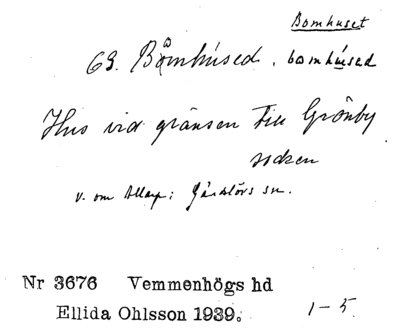 Bomhuset
63. Båmhúsed, bomhúsed
Hus vid gränsen till Grönby
socken
v. om Allarp i Gärdslövs sn.
Nr 3676 Vemmenhögs hd
Ellida Ohlsson 1939.
1-5